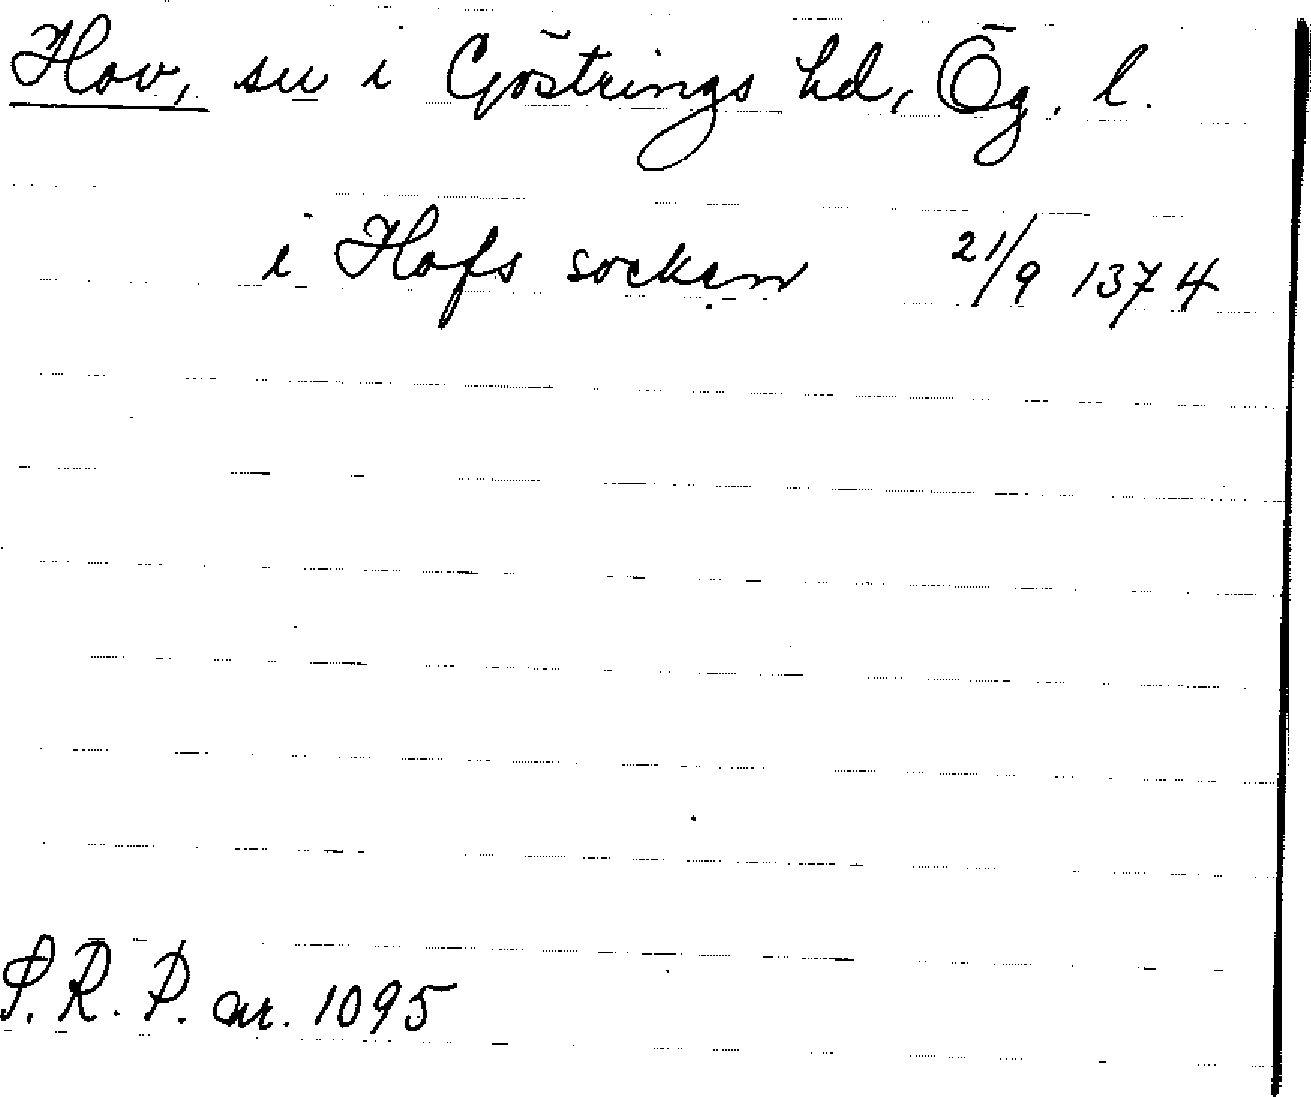 Hov, sn i Göstrings hd, Ög. l.
i Hofs sockin 21/9 1374
S.R.P. nr. 1095